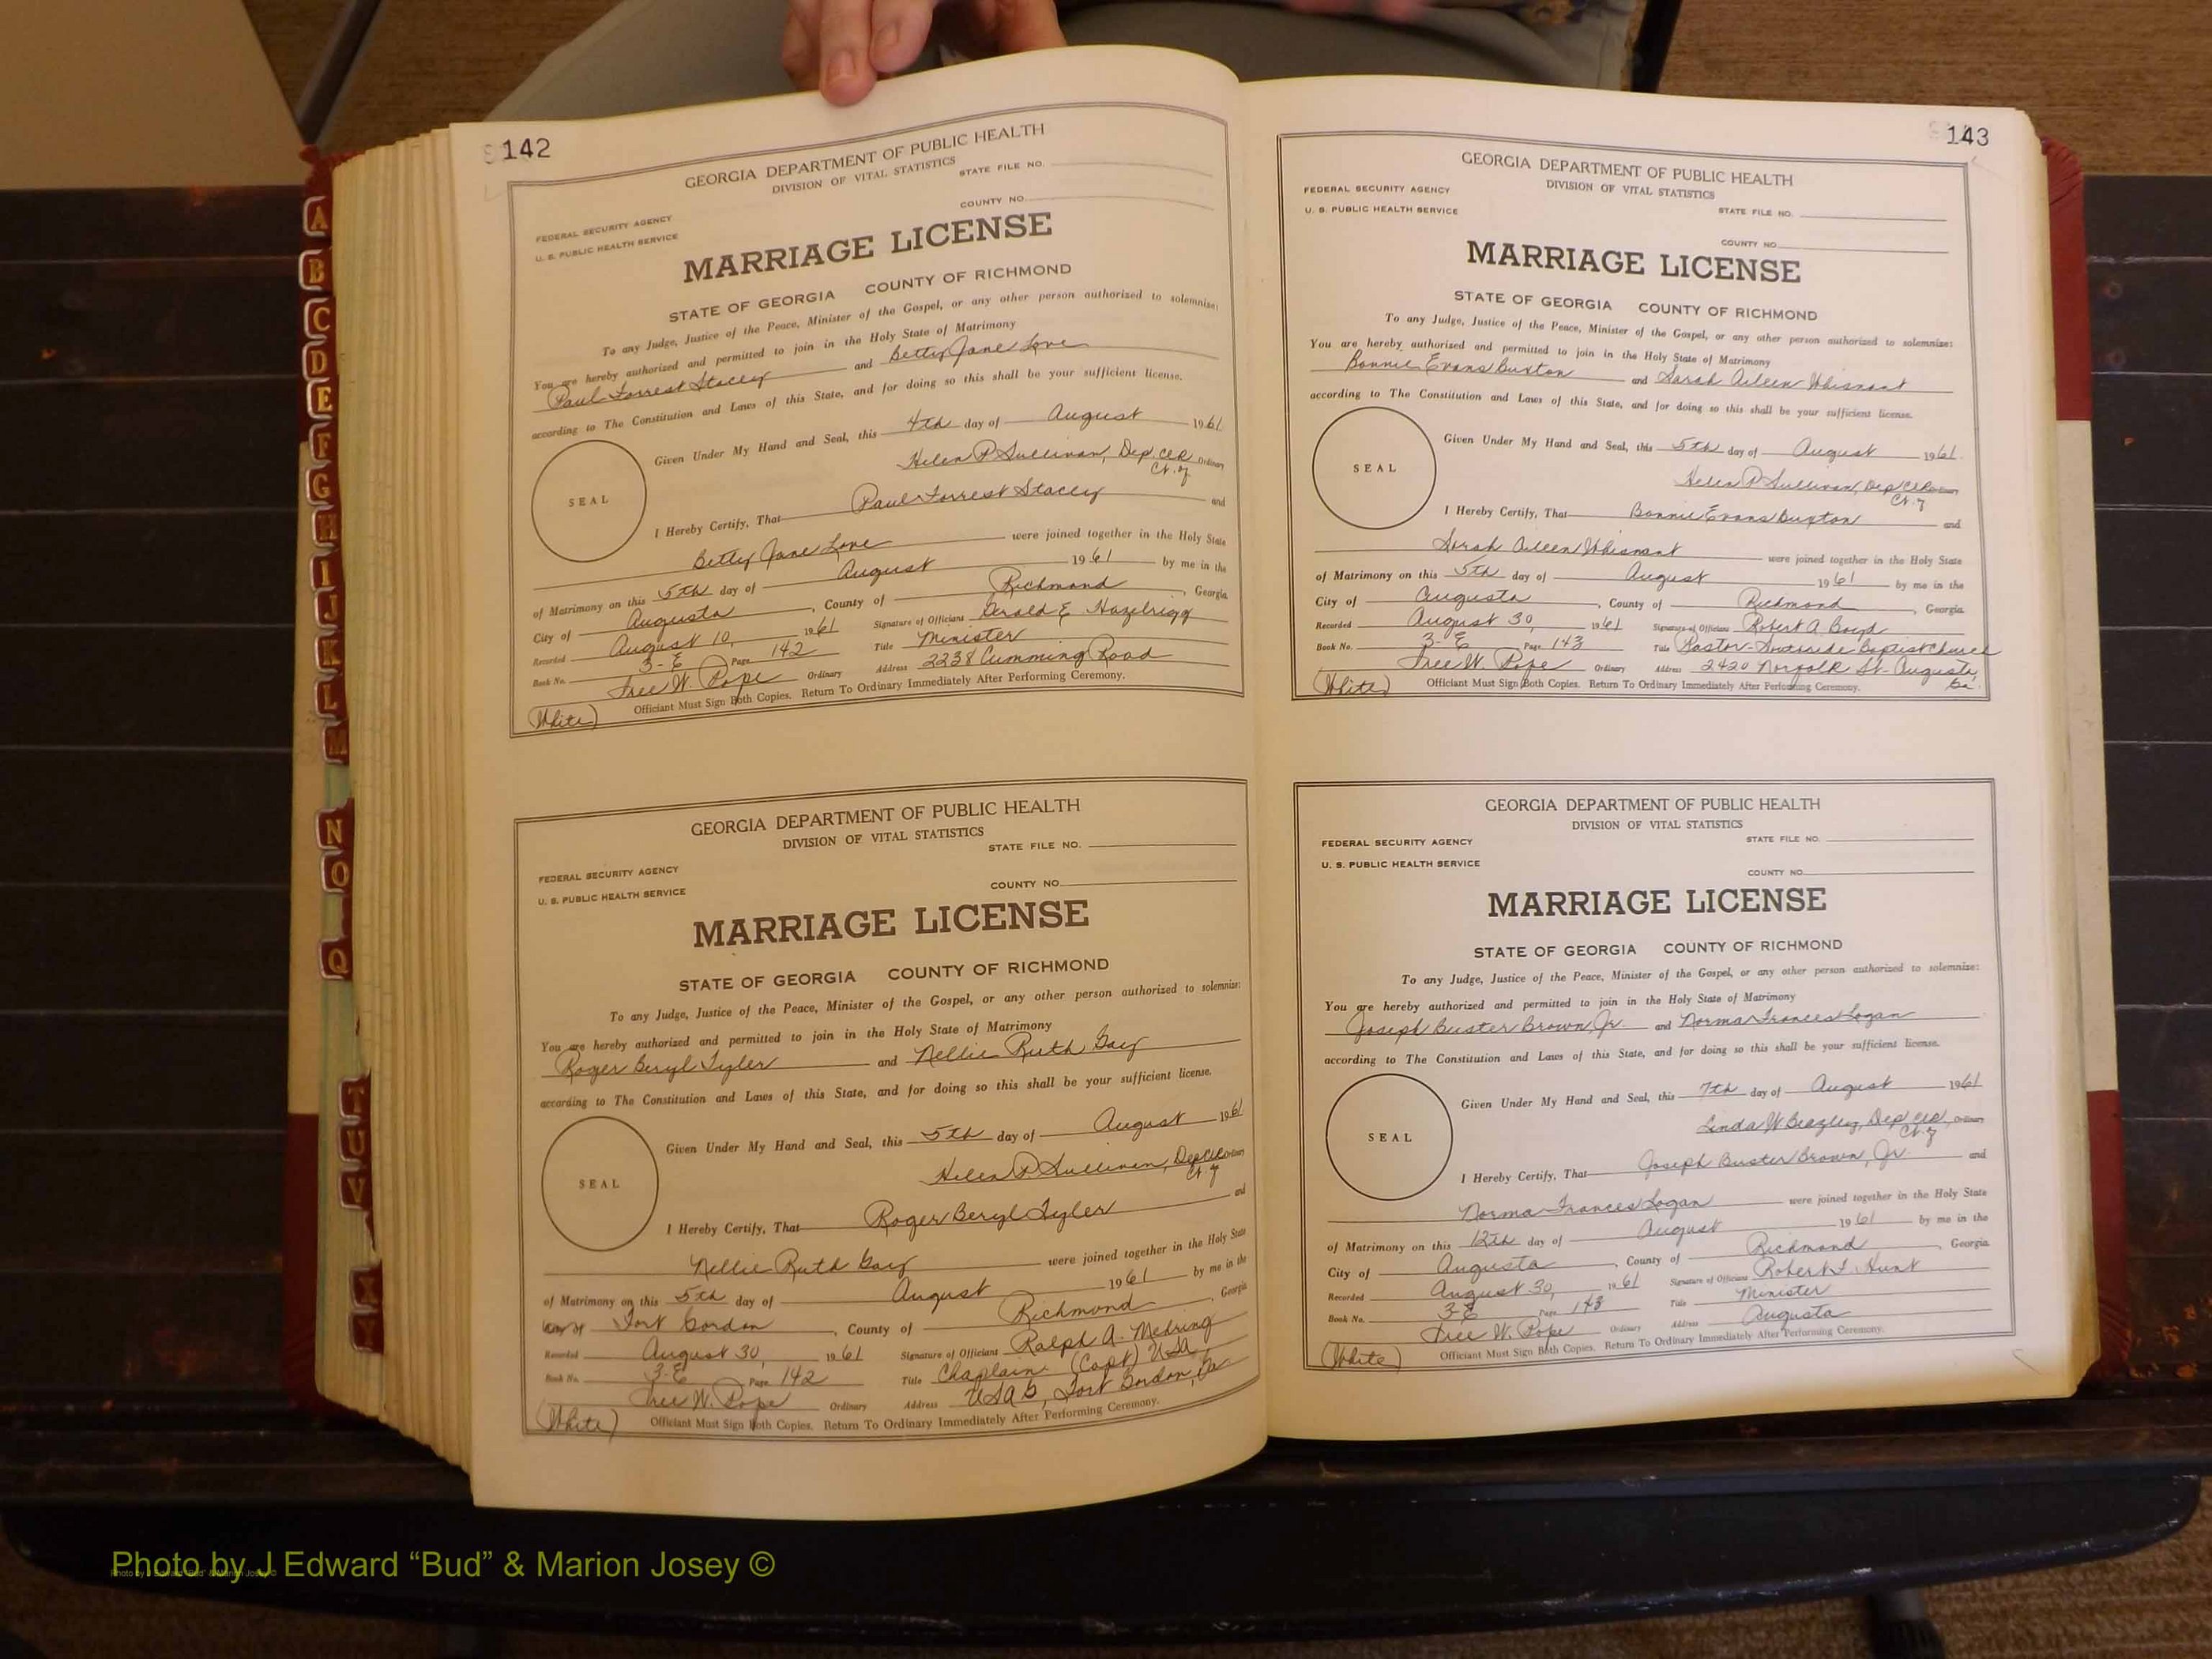 142
GEORGIA DEPARTMENT OF PUBLIC HEALTH
DIVISION OF VITAL STATISTICS
STATE FILE NO.
COUNTY NO.
FEDERAL SECURITY AGENCY
U. S. PUBLIC HEALTH SERVICE
MARRIAGE LICENSE
STATE OF GEORGIA COUNTY OF RICHMOND
To any Judge, Justice of the Peace, Minister of the Gospel, or any other person authorized to solemnize:
You are hereby authorized and permitted to join in the Holy State of Matrimony
Paul Forrest Stacey and Betty Jane Love
according to The Constitution and Laws of this State, and for doing so this shall be your sufficient license.
Given Under My Hand and Seal, this 4th day of August 1961
Helen P. Sullivan, Dep. Clk Ordinary
Ct. of
SEAL
I Hereby Certify, That Paul Forrest Stacey and
Betty Jane Love were joined together in the Holy State
of Matrimony on this 5th day of August 1961 by me in the
City of Augusta, County of Richmond, Georgia
Recorded August 10, 1961 Signature of Officiant Gerald E. Hazelrigg
Book No. 3-E Page 142 Title Minister
Tree W. Pope Ordinary Address 2238 Cumming Road
(White) Officiant Must Sign Both Copies. Return To Ordinary Immediately After Performing Ceremony.
GEORGIA DEPARTMENT OF PUBLIC HEALTH
DIVISION OF VITAL STATISTICS
STATE FILE NO.
FEDERAL SECURITY AGENCY
COUNTY NO.
U. S. PUBLIC HEALTH SERVICE
MARRIAGE LICENSE
STATE OF GEORGIA COUNTY OF RICHMOND
To any Judge, Justice of the Peace, Minister of the Gospel, or any other person authorized to solemnize:
You are hereby authorized and permitted to join in the Holy State of Matrimony
Roger Beryl Tyler and Nellie Ruth Gay
according to The Constitution and Laws of this State, and for doing so this shall be your sufficient license.
Given Under My Hand and Seal, this 5th day of August 1961
Helen P. Sullivan, Dep Clk Ordinary
Ct. of
SEAL
I Hereby Certify, That Roger Beryl Tyler and
Nellie Ruth Gay were joined together in the Holy State
of Matrimony on this 5th day of August 1961 by me in the
City of Fort Gordon, County of Richmond, Georgia
Recorded August 30, 1961 Signature of Officiant Ralph A. Mehring
Book No. 3-E Page 142 Title Chaplain (Capt) USA
Tree W. Pope Ordinary Address Fort Gordon, Ga
(White) Officiant Must Sign Both Copies. Return To Ordinary Immediately After Performing Ceremony.
143
GEORGIA DEPARTMENT OF PUBLIC HEALTH
DIVISION OF VITAL STATISTICS
FEDERAL SECURITY AGENCY
U. S. PUBLIC HEALTH SERVICE
STATE FILE NO.
COUNTY NO.
MARRIAGE LICENSE
STATE OF GEORGIA COUNTY OF RICHMOND
To any Judge, Justice of the Peace, Minister of the Gospel, or any other person authorized to solemnize:
You are hereby authorized and permitted to join in the Holy State of Matrimony
Bonnie Evans Buxton and Sarah Aileen Whisnant
according to The Constitution and Laws of this State, and for doing so this shall be your sufficient license.
Given Under My Hand and Seal, this 5th day of August 1961
Helen P. Sullivan, Dep Clk Ordinary
Ct. of
SEAL
I Hereby Certify, That Bonnie Evans Buxton and
Sarah Aileen Whisnant were joined together in the Holy State
of Matrimony on this 5th day of August 1961 by me in the
City of Augusta, County of Richmond, Georgia
Recorded August 30, 1961 Signature of Officiant Robert A. Boyd
Book No. 3-E Page 143 Title Pastor-Southside Baptist Church
Tree W. Pope Ordinary Address 2420 Norfolk St- Augusta,
Ga.
(White) Officiant Must Sign Both Copies. Return To Ordinary Immediately After Performing Ceremony.
GEORGIA DEPARTMENT OF PUBLIC HEALTH
DIVISION OF VITAL STATISTICS
FEDERAL SECURITY AGENCY
STATE FILE NO.
U. S. PUBLIC HEALTH SERVICE
COUNTY NO.
MARRIAGE LICENSE
STATE OF GEORGIA COUNTY OF RICHMOND
To any Judge, Justice of the Peace, Minister of the Gospel, or any other person authorized to solemnize:
You are hereby authorized and permitted to join in the Holy State of Matrimony
Joseph Buster Brown, Jr. and Norma Frances Logan
according to The Constitution and Laws of this State, and for doing so this shall be your sufficient license.
Given Under My Hand and Seal, this 7th day of August 1961
Linda W. Beazley, Dep Clk, Ordinary
Ct. of
SEAL
I Hereby Certify, That Joseph Buster Brown, Jr. and
Norma Frances Logan were joined together in the Holy State
of Matrimony on this 12th day of August 1961 by me in the
City of Augusta, County of Richmond, Georgia
Recorded August 30, 1961 Signature of Officiant Robert F. Hunt
Book No. 3-E Page 143 Title Minister
Tree W. Pope Ordinary Address Augusta
(White) Officiant Must Sign Both Copies. Return To Ordinary Immediately After Performing Ceremony.
A
B
C
D
E
F
G
H
I
J
K
L
M
N
O
Q
T
U
V
X
Y
Photo by J Edward “Bud” & Marion Josey ©
Photo by J Edward “Bud” & Marion Josey ©